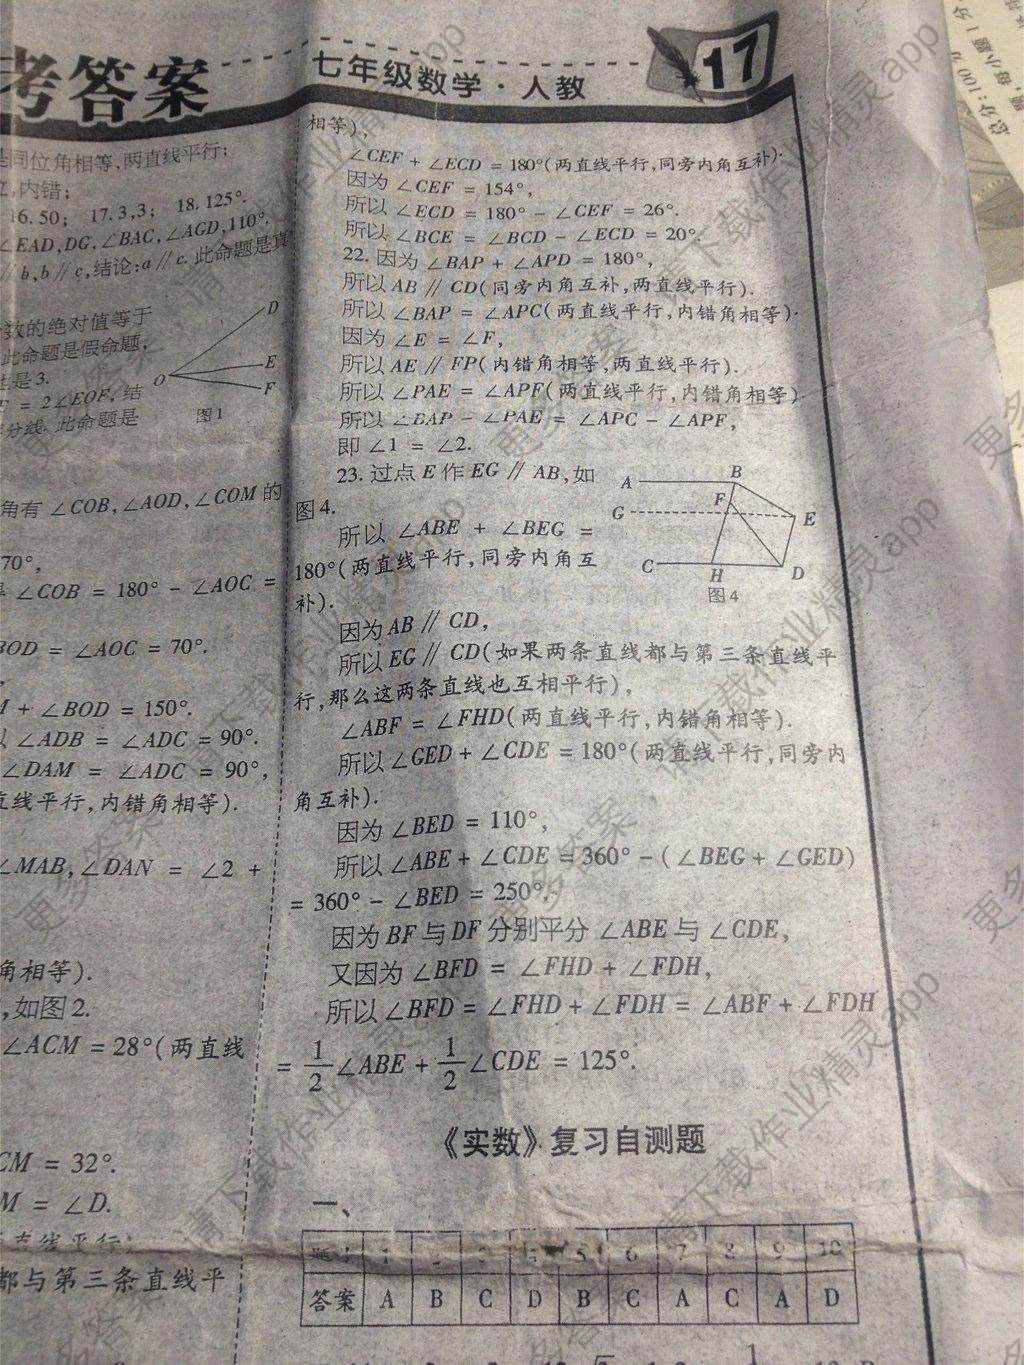 考答案
七年级数学·人教
17
是同位角相等,两直线平行;
内错;
16.50; 17.3,3; 18.125°.
∠EAD,DG,∠BAC,∠AGD,110°.
∥b,b∥c,结论:a∥c.此命题是真
数的绝对值等于
此命题是假命题,
是3.
= 2∠EOF,结
分线.此命题是
D
E
O
F
图1
角有∠COB,∠AOD,∠COM的
70°,
∠COB = 180° - ∠AOC =
BOD = ∠AOC = 70°.
+ ∠BOD = 150°.
∠ADB = ∠ADC = 90°.
∠DAM = ∠ADC = 90°,
直线平行,内错角相等).
∠MAB,∠DAN = ∠2 +
角相等).
,如图2.
∠ACM = 28°(两直线
CM = 32°.
M = ∠D.
都与第三条直线平
相等),
∠CEF + ∠ECD = 180°(两直线平行,同旁内角互补).
因为∠CEF = 154°,
所以∠ECD = 180° - ∠CEF = 26°.
所以∠BCE = ∠BCD - ∠ECD = 20°.
22.因为∠BAP + ∠APD = 180°,
所以AB∥CD(同旁内角互补,两直线平行).
所以∠BAP = ∠APC(两直线平行,内错角相等).
因为∠E = ∠F,
所以AE∥FP(内错角相等,两直线平行).
所以∠PAE = ∠APF(两直线平行,内错角相等).
所以∠BAP - ∠PAE = ∠APC - ∠APF,
即∠1 = ∠2.
23.过点E作EG∥AB,如
图4.
所以∠ABE + ∠BEG =
180°(两直线平行,同旁内角互
补).
A
B
F
G
E
C
H
D
图4
因为AB∥CD,
所以EG∥CD(如果两条直线都与第三条直线平
行,那么这两条直线也互相平行),
∠ABF = ∠FHD(两直线平行,内错角相等).
所以∠GED + ∠CDE = 180°(两直线平行,同旁内
角互补).
因为∠BED = 110°,
所以∠ABE + ∠CDE = 360° - (∠BEG + ∠GED)
= 360° - ∠BED = 250°.
因为BF与DF分别平分∠ABE与∠CDE,
又因为∠BFD = ∠FHD + ∠FDH,
所以∠BFD = ∠FHD + ∠FDH = ∠ABF + ∠FDH
= 1/2∠ABE + 1/2∠CDE = 125°.
《实数》复习自测题
一、
5 6 7 8 9 10
答案 A B C D B C A C A D
总分:100分
更多答案,请下载作业精灵app